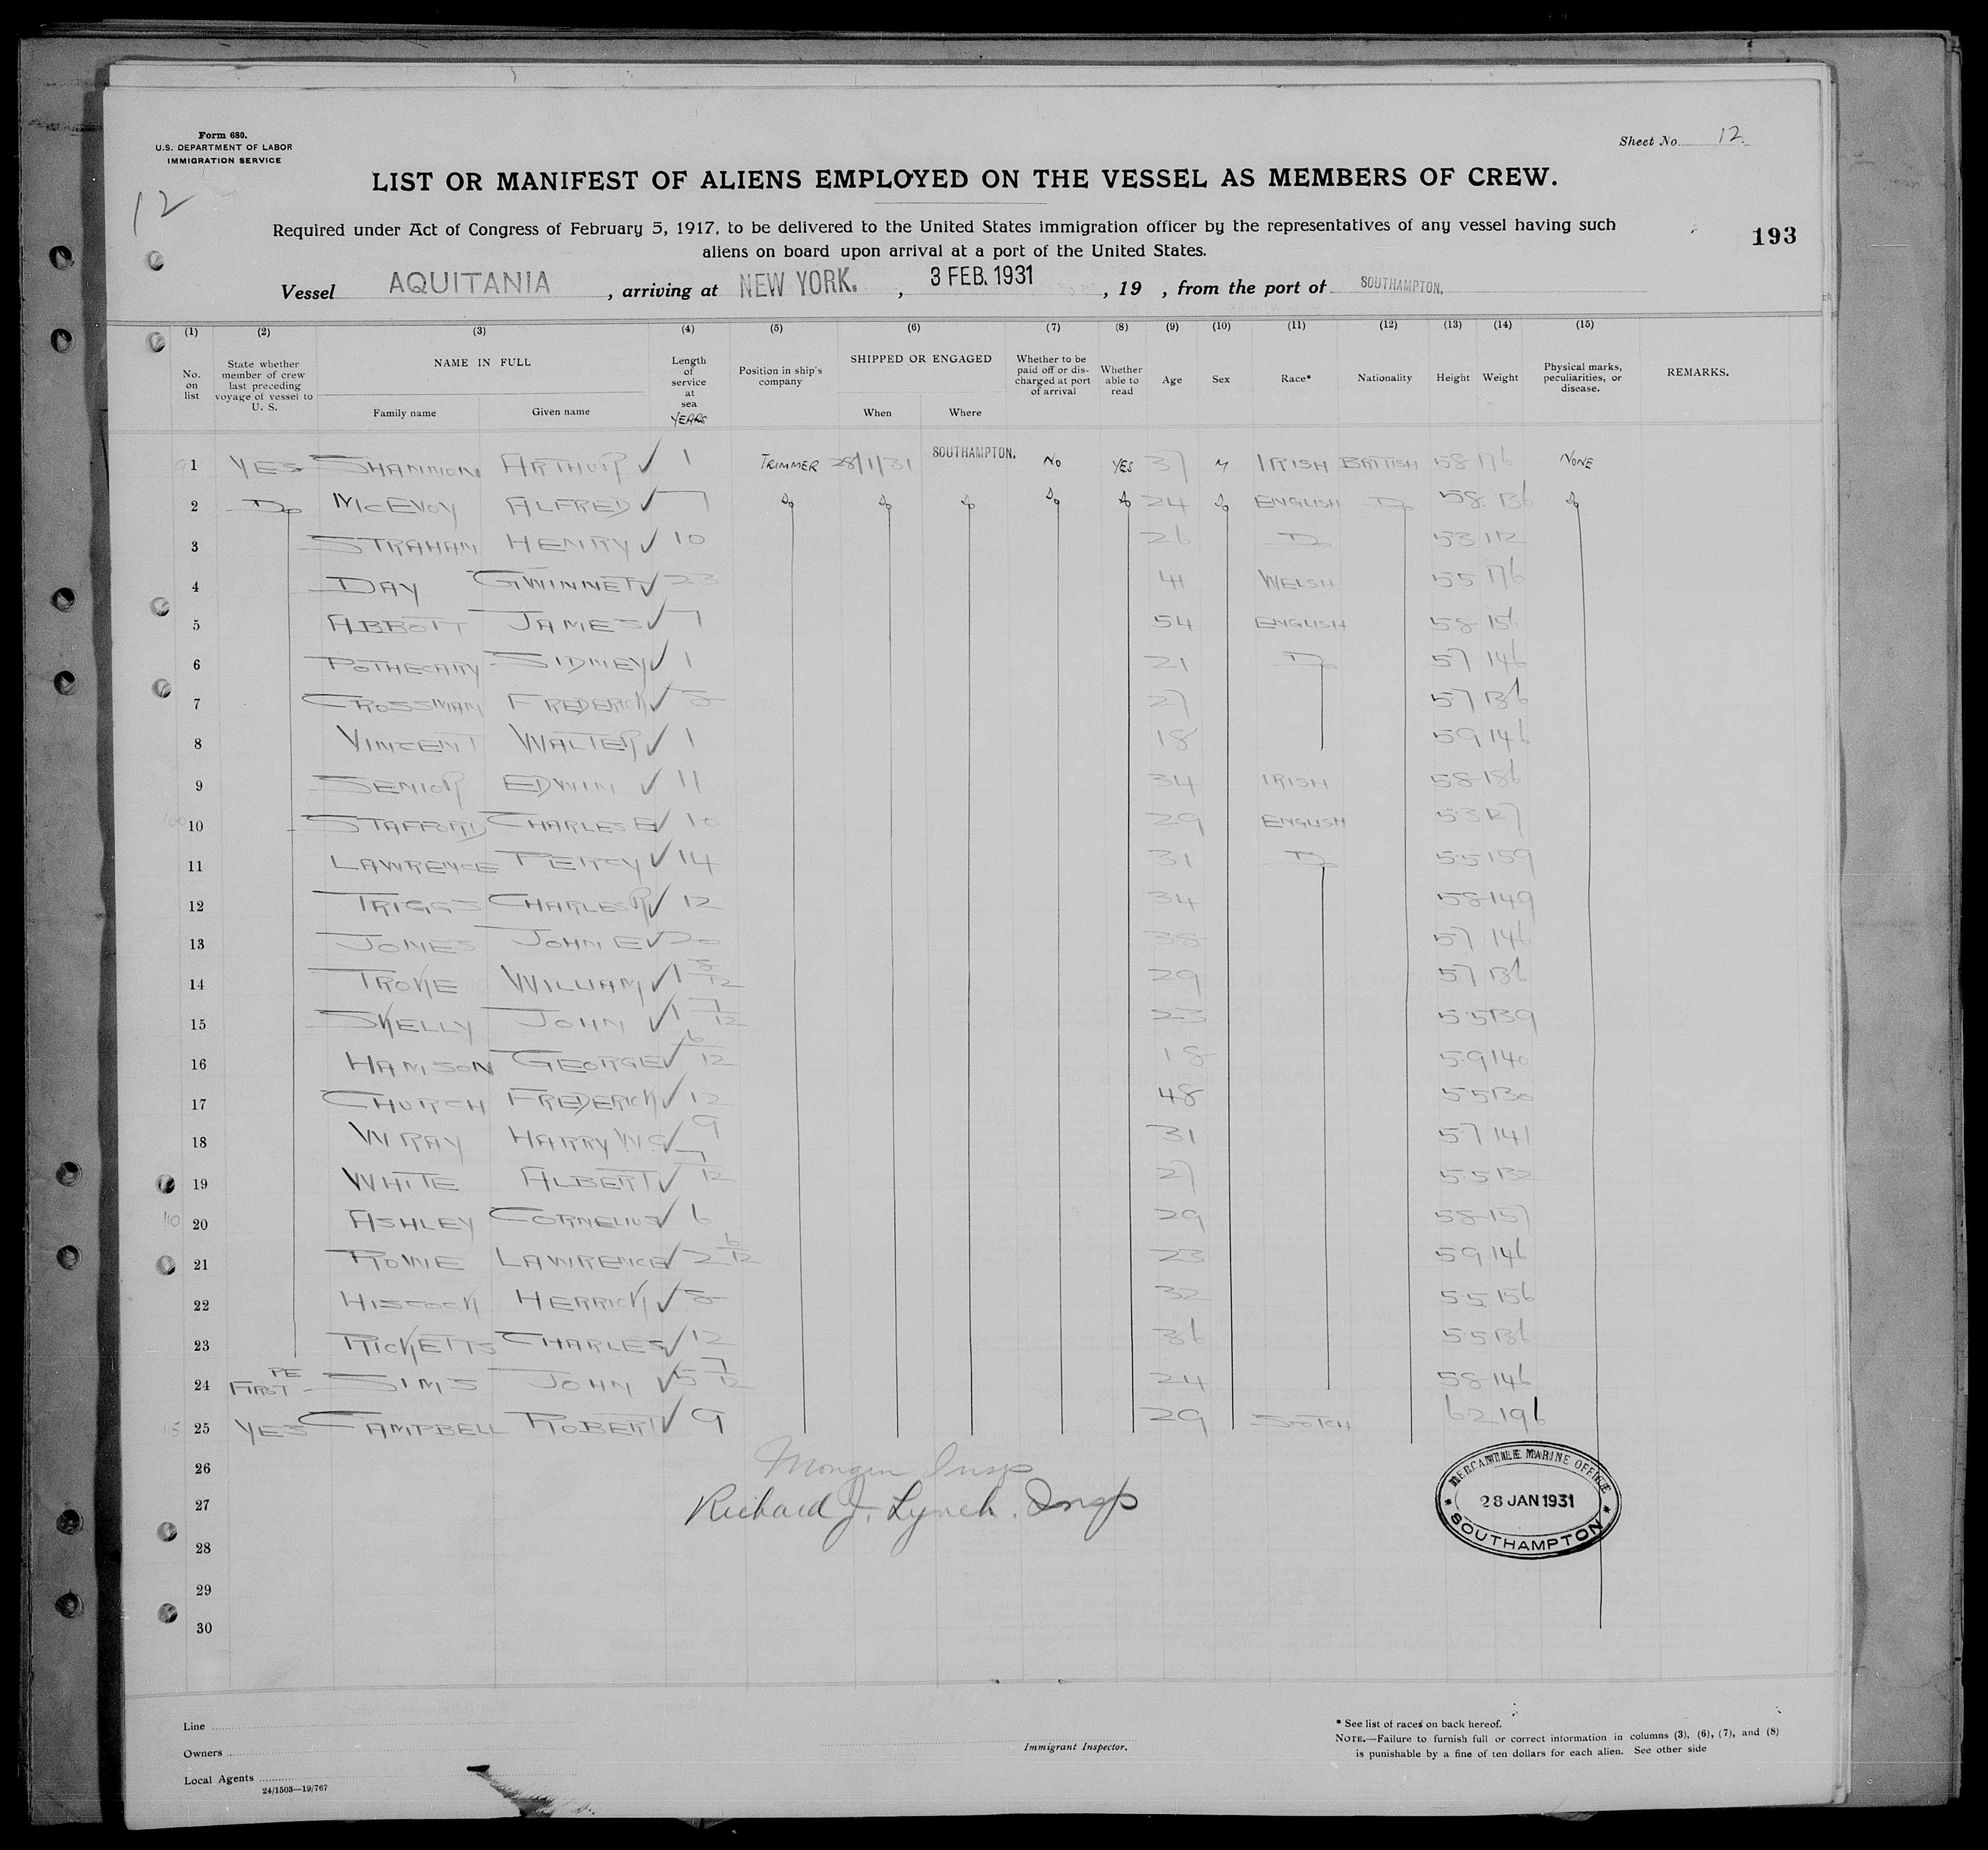 Form 680.
U.S. DEPARTMENT OF LABOR
IMMIGRATION SERVICE
Sheet No. 12.
12
LIST OR MANIFEST OF ALIENS EMPLOYED ON THE VESSEL AS MEMBERS OF CREW.
Required under Act of Congress of February 5, 1917, to be delivered to the United States immigration officer by the representatives of any vessel having such
aliens on board upon arrival at a port of the United States.
193
Vessel AQUITANIA, arriving at NEW YORK., 3 FEB. 1931, 19 , from the port of SOUTHAMPTON.
(1) (2) (3) (4) (5) (6) (7) (8) (9) (10) (11) (12) (13) (14) (15)
No. on list State whether member of crew last preceding voyage of vessel to U. S. NAME IN FULL Family name Given name Length of service at sea YEARS Position in ship's company SHIPPED OR ENGAGED When Where Whether to be paid off or discharged at port of arrival Whether able to read Age Sex Race* Nationality Height Weight Physical marks, peculiarities, or disease. REMARKS.
1 YES SHANNON ARTHUR ✓ 1 TRIMMER 28/1/31 SOUTHAMPTON. NO YES 37 M IRISH BRITISH 58 176 NONE
2 Do McEVOY ALFRED ✓ 7 Do Do Do Do Do 24 Do ENGLISH Do 58 136 Do
3 STRAHAN HENRY ✓ 10 26 Do 53 112
4 DAY GWINNETT ✓ 23 41 WELSH 55 176
5 ABBOTT JAMES ✓ 7 54 ENGLISH 58 156
6 POTHECARY SIDNEY ✓ 1 21 Do 57 146
7 CROSSMAN FREDERICK ✓ 8 27 57 136
8 VINCENT WALTER ✓ 1 18 59 146
9 SENIOR EDWIN ✓ 11 34 IRISH 58 186
10 STAFFORD CHARLES E ✓ 10 29 ENGLISH 53 127
11 LAWRENCE PERCY ✓ 14 31 Do 55 159
12 TRIGGS CHARLES R ✓ 12 34 58 149
13 JONES JOHN E ✓ 20 38 57 146
14 TROKE WILLIAM ✓ 1 8/12 29 57 136
15 SKELLY JOHN ✓ 1 7/12 23 55 139
16 HAMSON GEORGE ✓ 6/12 18 59 140
17 CHURCH FREDERICK ✓ 12 48 55 130
18 WRAY HARRY W G ✓ 9 31 57 141
19 WHITE ALBERT ✓ 7/12 27 55 132
20 ASHLEY CORNELIUS ✓ 6 29 58 157
21 ROWE LAWRENCE ✓ 2 6/12 23 59 146
22 HISCOCK HERRICK ✓ 8 32 55 156
23 RICKETTS CHARLES ✓ 12 36 55 136
24 FIRST SIMS JOHN ✓ 5 7/12 24 58 146
25 YES CAMPBELL ROBERT ✓ 9 29 SCOTCH 62 196
26
27 Richard J. Lynch. Insp
28
29
30
MERCANTILE MARINE OFFICE
28 JAN 1931
SOUTHAMPTON
Line
Owners
Local Agents
24/1503—19/767
Immigrant Inspector.
* See list of races on back hereof.
NOTE.—Failure to furnish full or correct information in columns (3), (6), (7), and (8)
is punishable by a fine of ten dollars for each alien. See other side